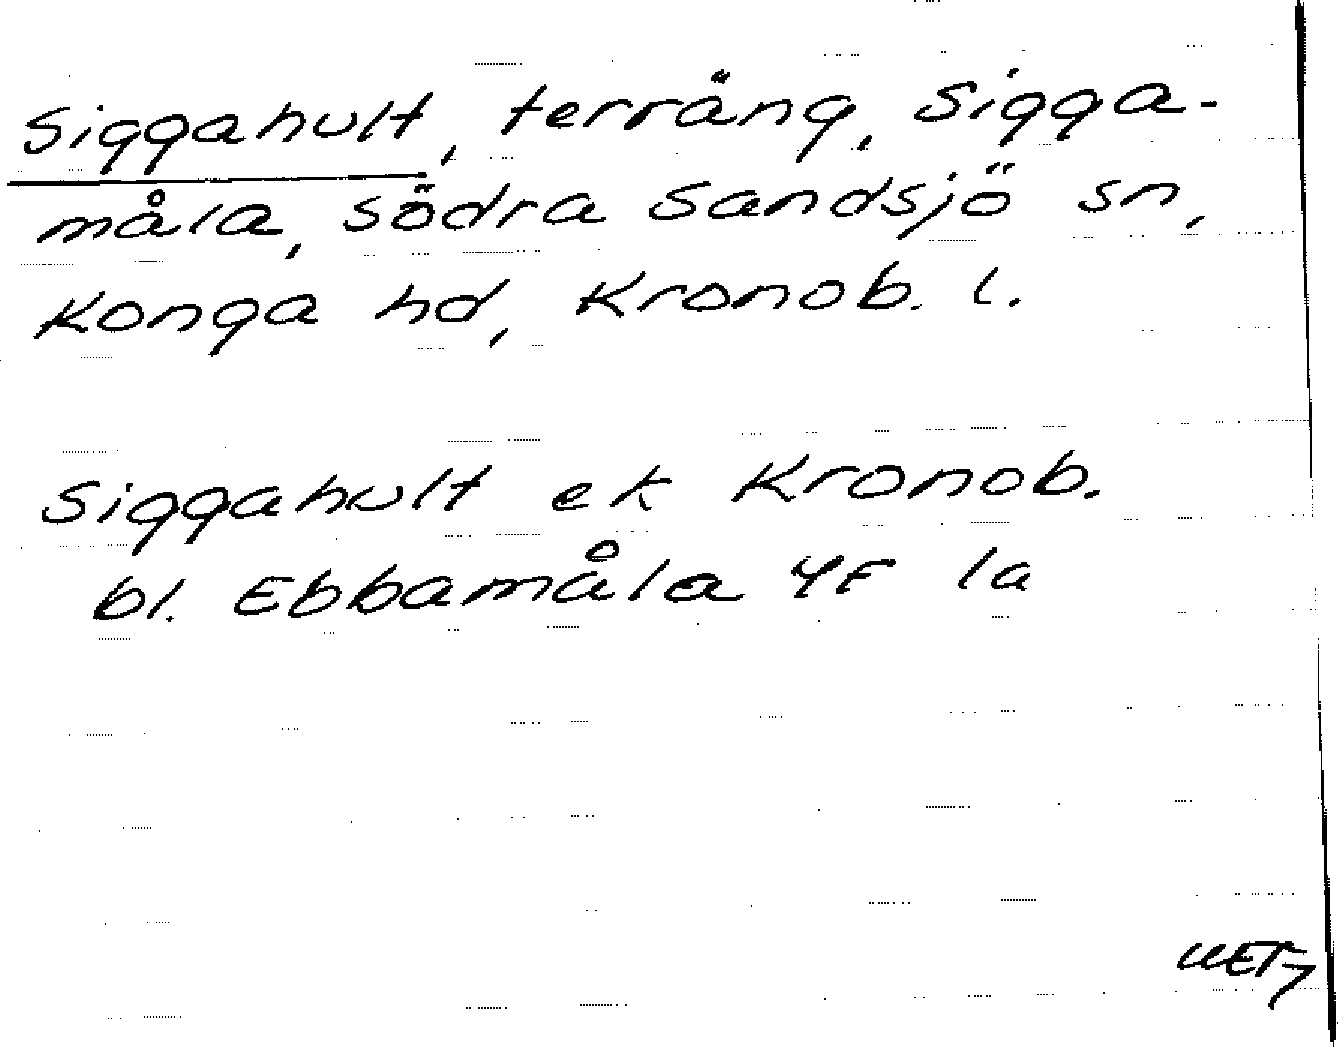 Siggahult, terräng, Sigga-
måla, södra Sandsjö sn,
Konga hd, Kronob. l.
Siggahult ek Kronob.
bl. Ebbamåla 4F 1a